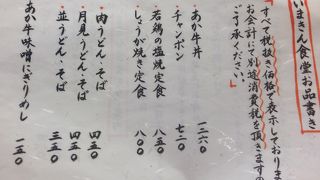 いまきん食堂お品書き
すべて税抜き価格で表示しております
お会計にて別途消費税を頂きますの
ご了承ください。
・あか牛丼 一二六〇
・チャンポン 七二〇
・若鶏の塩焼定食 八五〇
・しょうが焼き定食 八〇〇
・肉うどん・そば 四五〇
・月見うどん・そば 四五〇
・並うどん・そば 三五〇
あか牛味噌にぎりめし 一五〇